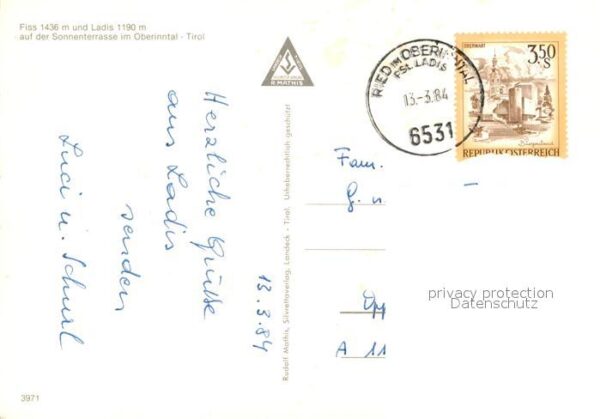 Fiss 1436 m und Ladis 1190 m
auf der Sonnenterrasse im Oberinntal - Tirol
R. MATHIS
Herzliche Grüße
aus Ladis
senden
Luci u. Schurl
13.3.84
Rudolf Mathis, Silvrettaverlag, Landeck - Tirol. Urheberrechtlich geschützt
RIED IM OBERINNTAL
PSt. LADIS
13.-3.84
6531
OBERWART
3.50
S
Burgenland
REPUBLIK ÖSTERREICH
Fam.
G. u.
A 11
privacy protection
Datenschutz
3971